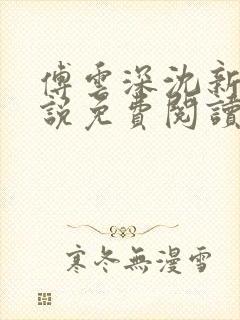 傅雲深沈新
說免費閱讀
寒冬無漫雪